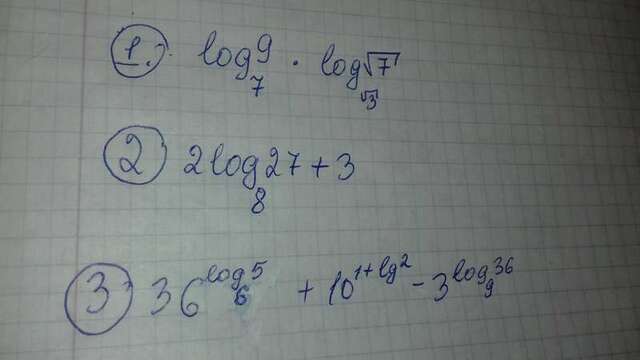 1. log₇9 · log_√3 √7
2 2log₈27+3
3 36^log₆5 + 10^1+lg2 - 3^log₉36